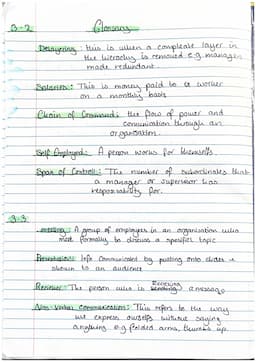 3-2 Glossary
Delayering: this is when a compleate layer in
the hierachy is removed e.g. managers
made redundant.
Salaries: This is money paid to a worker
on a monthly basis
Chain of Command: the flow of power and
comunication through an
organisation.
Self Employed: A person works for themselfs.
Span of Control: The number of subordinates that
a manager or supervisor has
responsability for.
3.3
Meeting: A group of employees in an organisation who
meet formally to discuss a specific topic
Presentation: Info communicated by putting onto slides &
shown to an audience
Receiver: The person who is Receiving a message
Non Verbal communication: This refers to the way
we express ourselfs without saying
anything. e.g folded arms, thumbs up.